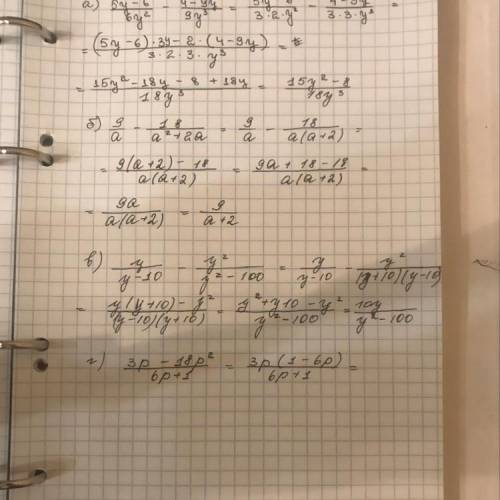 а) (5y-6)/(6y²) - (4-9y)/(9y³) = (5y-6)/(3·2·y²) - (4-9y)/(3·3·y³) =
= ((5y-6)·3y-2·(4-9y))/(3·2·3·y³) =
= (15y²-18y-8+18y)/(18y³) = (15y²-8)/(18y³)
б) 9/a - 18/(a²+2a) = 9/a - 18/(a(a+2)) =
= (9(a+2)-18)/(a(a+2)) = (9a+18-18)/(a(a+2)) =
= 9a/(a(a+2)) = 9/(a+2)
в) y/(y-10) - y²/(y²-100) = y/(y-10) - y²/((y+10)(y-10))
= (y(y+10)-y²)/((y-10)(y+10)) = (y²+y10-y²)/(y²-100) = 10y/(y²-100)
г) (3p-18p²)/(6p+1) = (3p(1-6p))/(6p+1) =